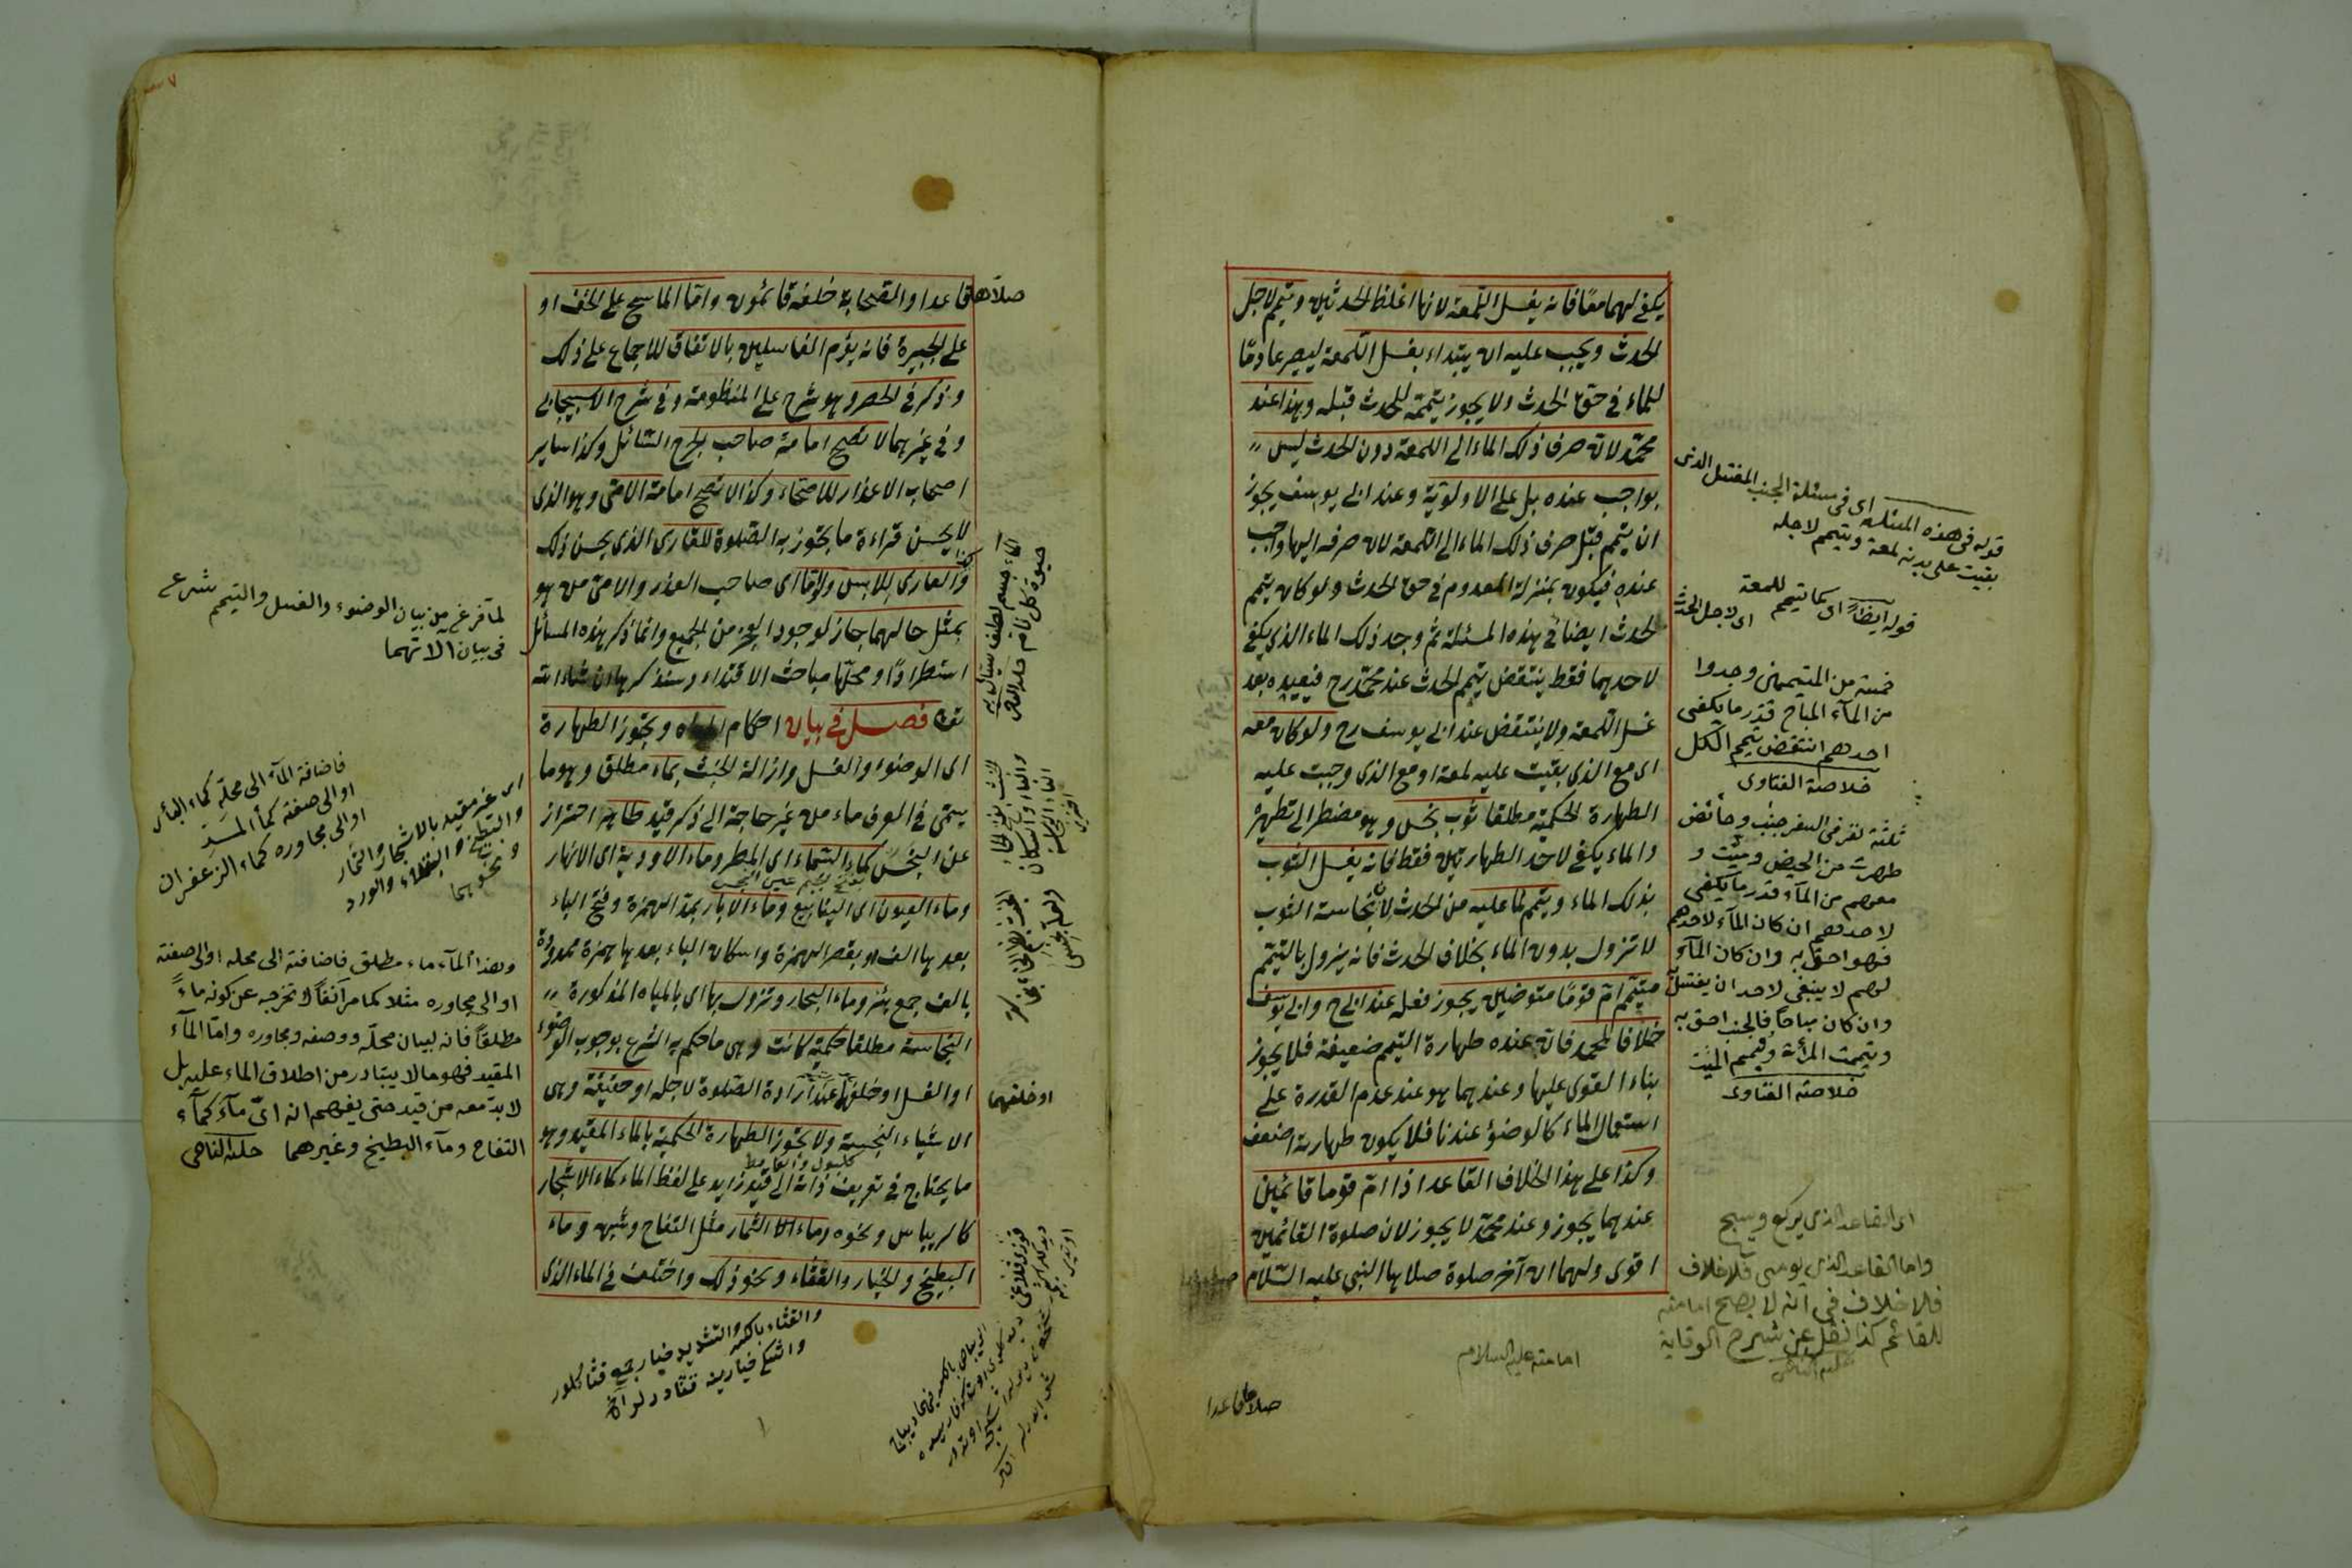 يكفى لهما معًا فانه يغسل اللمعة لانها اغلظ الحدثين ويتيمم لاجل
الحدث ويجب عليه ان يبتداء بغسل اللمعة ليصير عادمًا
للماء فى حق الحدث ولا يجوز تيممه للحدث قبله وهذا عند
محمد لان صرف ذلك الماء الى اللمعة دون الحدث ليس
بواجب عنده بل على الاولوية وعند ابى يوسف يجوز
ان يتيمم قبل صرف ذلك الماء الى اللمعة لان صرفه اليها واجب
عنده فيكون بمنزلة المعدوم فى حق الحدث ولو كان يتيمم
للحدث ايضا فى هذه المسئلة ثم وجد ذلك الماء الذى يكفى
لاحدهما فقط ينتقض تيمم الحدث عند محمد رح فيعيده بعد
غسل اللمعة ولا ينتقض عند ابى يوسف رح ولو كان معه
اى مع الذى بقيت عليه لمعة او مع الذى وجبت عليه
الطهارة الحكمية مطلقا ثوب نجس وهو مضطر الى تطهيره
والماء يكفى لاحد الطهارتين فقط فانه يغسل الثوب
بذلك الماء ويتيمم لما عليه من الحدث لان نجاسة الثوب
لا تزول بدون الماء بخلاف الحدث فانه يزول بالتيمم
متيمم ام قومًا متوضئين يجوز فعله عند ابى ح وابى يوسف
خلافا لمحمد فان عنده طهارة التيمم ضعيفة فلا يجوز
بناء القوى عليها وعندهما هو عند عدم القدرة على
استعمال الماء كالوضؤ عندنا فلا يكون طهارته اضعف
وكذا على هذا الخلاف القاعد اذا ام قوما قائمين
عندهما يجوز وعند محمد لا يجوز لان صلوة القائمين
اقوى ولهما ان آخر صلوة صلاها النبى عليه السلام
قوله فى هذه المسئلة اى فى مسئلة الجنب المغتسل الذى
بقيت على بدنه لمعة ويتيمم لاجله
قوله ايضًا اى كما تيمم للمعة
اى لاجل الحدث
خمسة من المتيممين وجدوا
من المآء المباح قدر ما يكفى
احدهم انتقض تيمم الكل
خلاصة الفتاوى
ثلثة نفر فى السفر جنب وحائض
طهرت من الحيض وميت و
معهم من المآء قدر ما يكفى
لاحدهم ان كان المآء لاحدهم
فهو احق به وان كان المآء
لهم لا ينبغى لاحد ان يغتسل
وان كان مباحًا فالجنب احق به
وتيممت المرأة وتيمم الميت
خلاصة الفتاوى
اى القاعد الذى يركع ويسجد
واما القاعد الذى يومى فلا خلاف
فلا خلاف فى انه لا يصح امامته
للقائم كذا نقل عن شرح الوقاية
امامته عليه السلام
صلاها قاعدا
صلاها قاعدا والصحابة خلفه قائمون واما الماسح على الخف او
على الجبيرة فانه يؤم الغاسلين بالاتفاق للاجماع على ذلك
وذكر فى الحصر وهو شرح على المنظومة وفى شرح الاسبيجابى
وفى غيرهما لا تصح امامة صاحب الجرح السائل وكذا ساير
اصحاب الاعذار للاصحاء وكذا لا تصح امامة الامى وهو الذى
لا يحسن قراءة ما يجوز به الصلوة للقارى الذى يحسن ذلك
والعارى لللابس ولو اما اى صاحب العذر والامى من هو
بمثل حالهما جاز لوجود العجز من الجميع وانما ذكر هذه المسائل
استطرادًا ومحلها مباحث الاقتداء وسنذكرها ان شاء الله
تعالى فصل فى بيان احكام المياه ويجوز الطهارة
اى الوضوء والغسل وازالة الخبث بماء مطلق وهو ما
يسمى فى العرف ماء من غير حاجة الى ذكر قيد طاهر احتراز
عن النجس كماء السماء اى المطر وماء الاودية اى الانهار
وماء العيون اى الينابيع وماء الابار بمد الهمزة وفتح الباء
بعدها الف او بقصر الهمزة واسكان الباء بعدها همزة ممدودة
بالف جمع بئر وماء البحار وتزول بها اى بالمياه المذكورة
النجاسة مطلقا حكمية كانت وهى ما حكم به الشرع بوجوب الوضوء
او الغسل او خلفهما عند ارادة الصلوة لاجله او حقيقة وهى
الاشياء النجسة ولا يجوز الطهارة الحكمية بالماء المقيد وهو
ما يحتاج فى تعريف ذاته الى قيد زايد على لفظ الماء كماء الاشجار
كالريباس ونحوه وماء الثمار مثل التفاح وشبهه وماء
البطيخ والخيار والقثاء ونحو ذلك واختلف فى الماء الذى
لما فرغ من بيان الوضوء والغسل والتيمم شرع
فى بيان الاتهما
فاضافة المآء الى محله كماء البئر
او الى صفته كمآ المد
او الى مجاوره كماء الزعفران
اى غير مقيد بالاشجار والثمار
والبطيخ والقثاء والورد
ونحوهما
وهذا المآء ماء مطلق فاضافته الى محله او الى صفته
او الى مجاوره مثلا كما مر آنفًا لا تخرجه عن كونه ماءً
مطلقًا فانه لبيان محله ووصفه ومجاوره واما المآء
المقيد فهو ما لا يتبادر من اطلاق الماء عليه بل
لا بد معه من قيد حتى يفهم انه اى مآء كمآء
التفاح ومآء البطيخ وغيرهما
الماء جسم لطيف سيال به
حيوة كل نام
او خلفهما
والقثاء بالكسر والتشديد خيار جمع قثا